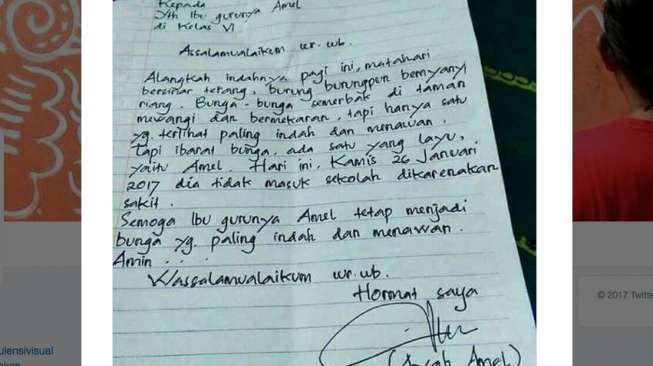 Kepada
Yth Ibu gurunya Amel
di Kelas VI
Assalamualaikum wr. wb.
Alangkah indahnya pagi ini, matahari
bersinar terang, burung burungpun bernyanyi
riang. Bunga-bunga semerbak di taman
mewangi dan bermekaran, tapi hanya satu
yg. terlihat paling indah dan menawan.
Tapi ibarat bunga, ada satu yang layu,
yaitu Amel. Hari ini, Kamis 26 Januari
2017 dia tidak masuk sekolah dikarenakan
sakit.
Semoga Ibu gurunya Amel tetap menjadi
bunga yg. paling indah dan menawan.
Amin . . .
Wassalamualaikum wr. wb.
Hormat saya
(Ayah Amel)
© 2017 Twitte
ulensivisual